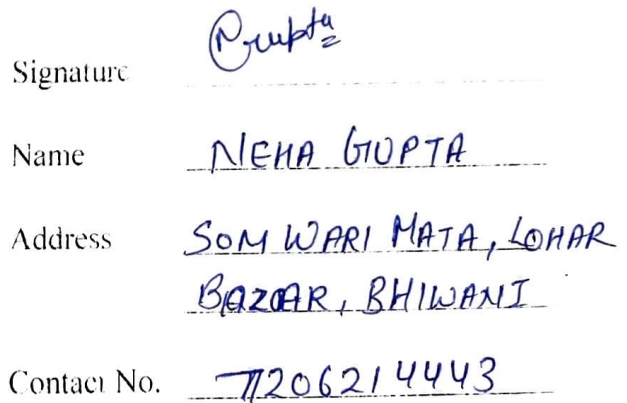 Signature Ngupta
Name NEHA GUPTA
Address SOMWARI MATA, LOHAR
BAZAAR, BHIWANI
Contact No. 7206214443